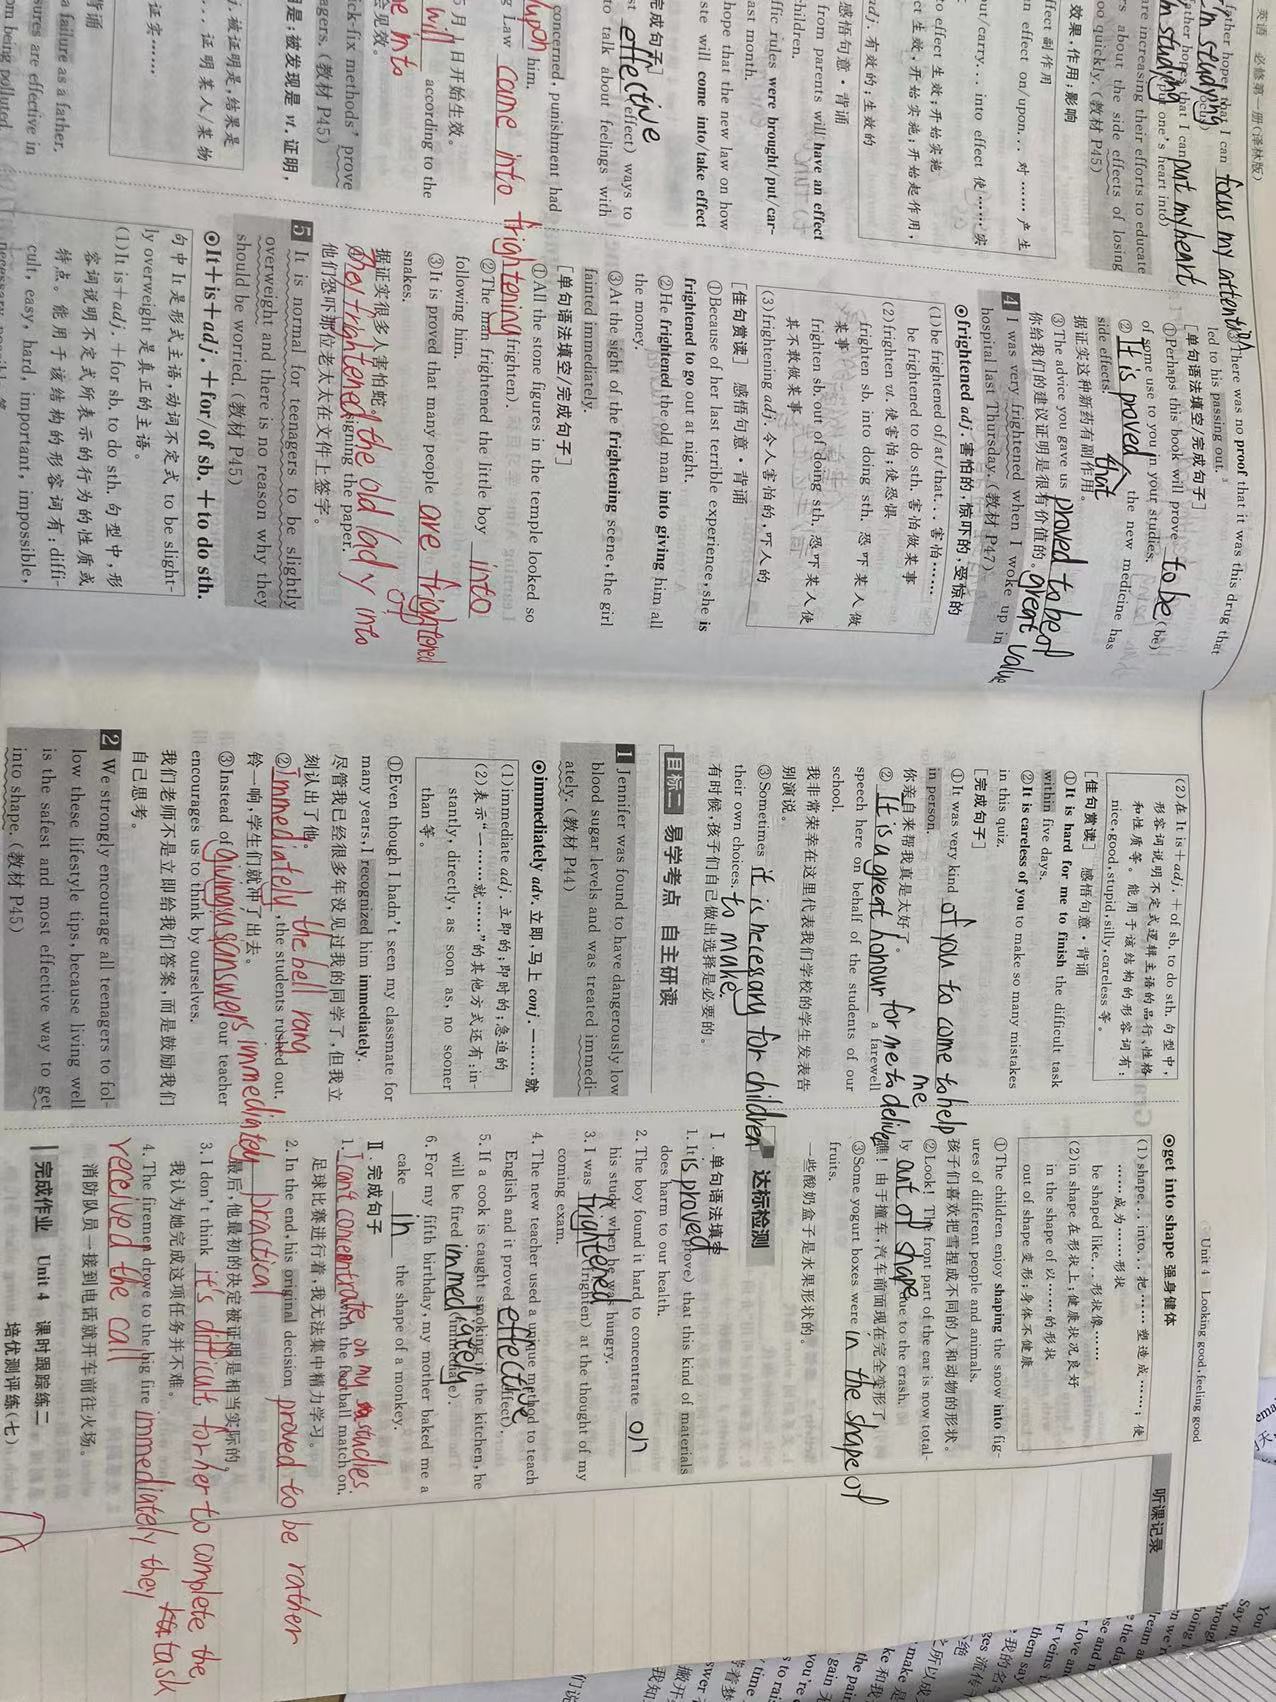 英语 必修第一册(译林版)
father hope that I can focus my attention
I'm studying
father hopes that I can put my heart
I'm studying (put one's heart into)
are increasing their efforts to educate
rs about the side effects of losing
oo quickly.(教材 P45)
效果,作用;影响
ffect 副作用
n effect on/upon... 对……产生
out/carry... into effect 使……实
to effect 生效;开始实施
ct 生效,开始实施;开始起作用,
adj. 有效的;生效的
感悟句意·背诵
from parents will have an effect
children.
ffic rules were brought/put/car-
ast month.
hope that the new law on how
ste will come into/take effect
完成句子]
st effective (effect) ways to
to talk about feelings with
concerned, punishment had
upon him.
g Law came into
5月1日开始生效。
will according to the
me into
会见效。
ick-fix methods' prove
agers.(教材 P45)
明是;被发现是 vt. 证明,
j. 被证明是,结果是
... 证明某人/某物
证实……
背诵
a failure as a father.
sures are effective in
om being polluted.
③There was no proof that it was this drug that
led to his passing out.
[单句语法填空/完成句子]
①Perhaps this book will prove to be (be)
of some use to you in your studies.
②It is proved that the new medicine has
side effects.
据证实这种新药有副作用。
③The advice you gave us proved to be of great value
你给我们的建议证明是很有价值的。
4 I was very frightened when I woke up in
hospital last Thursday.(教材 P47)
⊙frightened adj. 害怕的,惊吓的,受惊的
(1)be frightened of/at/that... 害怕……
be frightened to do sth. 害怕做某事
(2)frighten vt. 使害怕;使恐惧
frighten sb. into doing sth. 恐吓某人做
某事
frighten sb. out of doing sth. 恐吓某人使
其不敢做某事
(3)frightening adj. 令人害怕的,吓人的
[佳句赏读] 感悟句意·背诵
①Because of her last terrible experience, she is
frightened to go out at night.
②He frightened the old man into giving him all
the money.
③At the sight of the frightening scene, the girl
fainted immediately.
[单句语法填空/完成句子]
①All the stone figures in the temple looked so
frightening (frighten).
②The man frightened the little boy into
following him.
③It is proved that many people are frightened of
snakes.
据证实很多人害怕蛇。
④They frightened the old lady into signing the paper.
他们恐吓那位老太太在文件上签字。
5 It is normal for teenagers to be slightly
overweight and there is no reason why they
should be worried.(教材 P45)
⊙It+is+adj.+for/of sb.+to do sth.
句中 It 是形式主语,动词不定式 to be slight-
ly overweight 是真正的主语。
(1)It is+adj.+for sb. to do sth. 句型中,形
容词说明不定式所表示的行为的性质或
特点。能用于该结构的形容词有:diffi-
cult, easy, hard, important, impossible,
Unit 4 Looking good, feeling good
(2)在 It is+adj.+of sb. to do sth. 句型中,
形容词说明不定式逻辑主语的品行、性格
和性质等。能用于该结构的形容词有:
nice, good, stupid, silly, careless 等。
[佳句赏读] 感悟句意·背诵
①It is hard for me to finish the difficult task
within five days.
②It is careless of you to make so many mistakes
in this quiz.
[完成句子]
①It was very kind of you to come to help me
in person.
你亲自来帮我真是太好了。
②It is a great honour for me to deliver a farewell
speech here on behalf of the students of our
school.
我非常荣幸在这里代表我们学校的学生发表告
别演说。
③Sometimes it is necessary for children to make
their own choices.
有时候,孩子们自己做出选择是必要的。
目标二 易学考点 自主研读
1 Jennifer was found to have dangerously low
blood sugar levels and was treated immedi-
ately.(教材 P44)
⊙immediately adv. 立即,马上 conj. 一……就
(1)immediate adj. 立即的;即时的;急迫的
(2)表示“一……就……”的其他方式还有:in-
stantly, directly, as soon as, no sooner
than 等。
①Even though I hadn't seen my classmate for
many years, I recognized him immediately.
尽管我已经很多年没见过我的同学了,但我立
刻认出了他。
②Immediately the bell rang, the students rushed out.
铃一响,学生们就冲了出去。
③Instead of giving us answers immediately, our teacher
encourages us to think by ourselves.
我们老师不是立即给我们答案,而是鼓励我们
自己思考。
2 We strongly encourage all teenagers to fol-
low these lifestyle tips, because living well
is the safest and most effective way to get
into shape.(教材 P45)
⊙get into shape 强身健体
(1)shape... into... 把……塑造成……;使
……成为……形状
be shaped like... 形状像……
(2)in shape 在形状上;健康状况良好
in the shape of 以……的形状
out of shape 变形;身体不健康
①The children enjoy shaping the snow into fig-
ures of different people and animals.
孩子们喜欢把雪捏成不同的人和动物的形状。
②Look! The front part of the car is now total-
ly out of shape due to the crash.
瞧!由于撞车,汽车前面现在完全变形了。
③Some yogurt boxes were in the shape of
fruits.
一些酸奶盒子是水果形状的。
达标检测
Ⅰ.单句语法填空
1. It is proved (prove) that this kind of materials
does harm to our health.
2. The boy found it hard to concentrate on
his study when he was hungry.
3. I was frightened (frighten) at the thought of my
coming exam.
4. The new teacher used a unique method to teach
English and it proved effective (effect).
5. If a cook is caught smoking in the kitchen, he
will be fired immediately (immediate).
6. For my fifth birthday, my mother baked me a
cake in the shape of a monkey.
Ⅱ.完成句子
1. I can't concentrate on my studies with the football match on.
足球比赛进行着,我无法集中精力学习。
2. In the end, his original decision proved to be rather
practical
最后,他最初的决定被证明是相当实际的。
3. I don't think it's difficult for her to complete the
task
我认为她完成这项任务并不难。
4. The firemen drove to the big fire immediately they
received the call
消防队员一接到电话就开车前往火场。
完成作业 Unit 4 课时跟踪练二
培优测评练(七)
听课记录